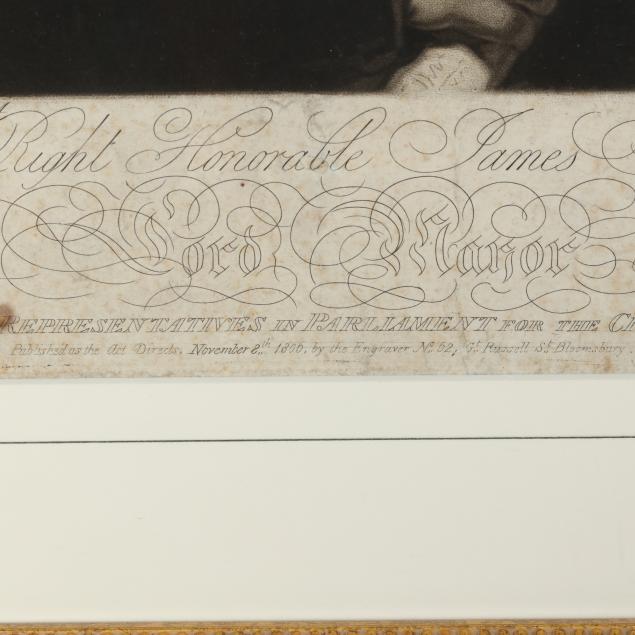 Right Honorable James
Lord Mayor
REPRESENTATIVES IN PARLIAMENT FOR THE
Published as the Act Directs, November 8th 1806, by the Engraver No. 52, Gt. Russell St. Bloomsbury.